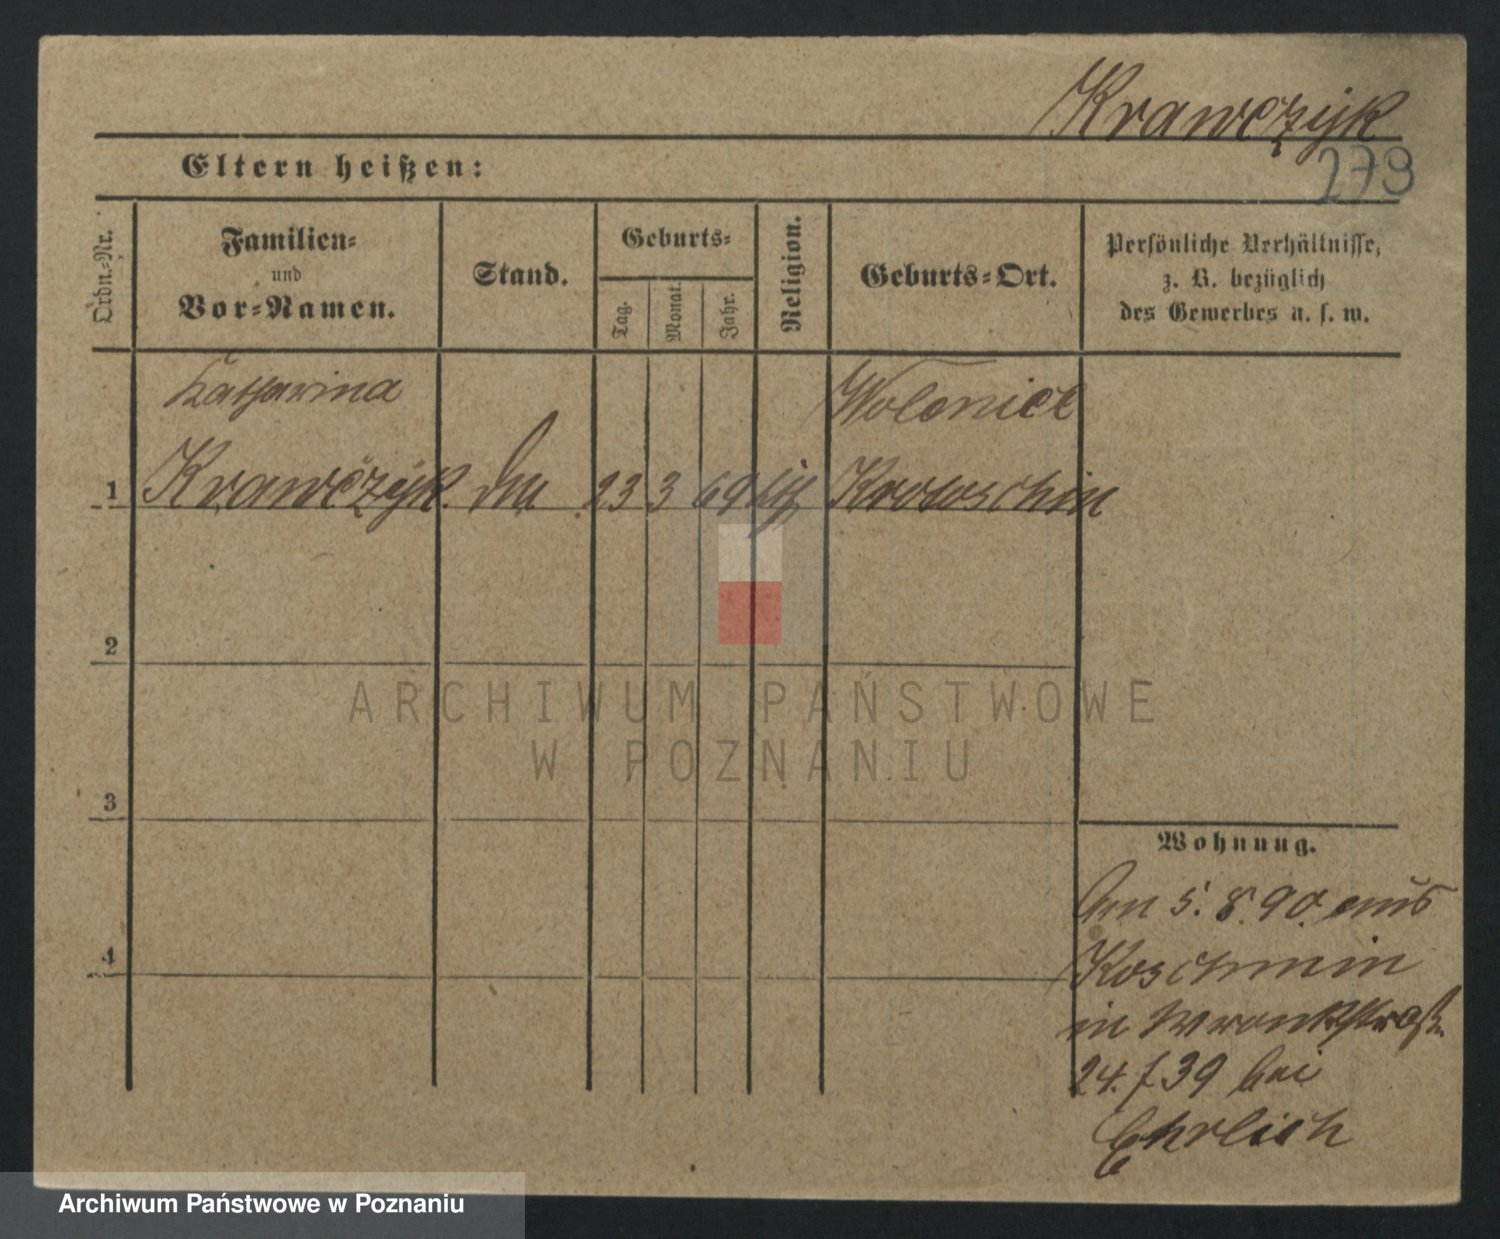 Krawczyk
279
Eltern heißen:
Ordn.-Nr.
Familien-
und
Vor-Namen.
Stand.
Geburts-
Tag.
Monat.
Jahr.
Religion.
Geburts-Ort.
Persönliche Verhältnisse,
z. B. bezüglich
des Gewerbes u. s. w.
Katharina
1 Krawczyk. 23 3 69 Krotoschin
2
3
4
Wohnung.
Am 5. 8. 90. aus
Koschmin
in
24. f 39 bei
Ehrlich
ARCHIWUM PAŃSTWOWE
W POZNANIU
Archiwum Państwowe w Poznaniu